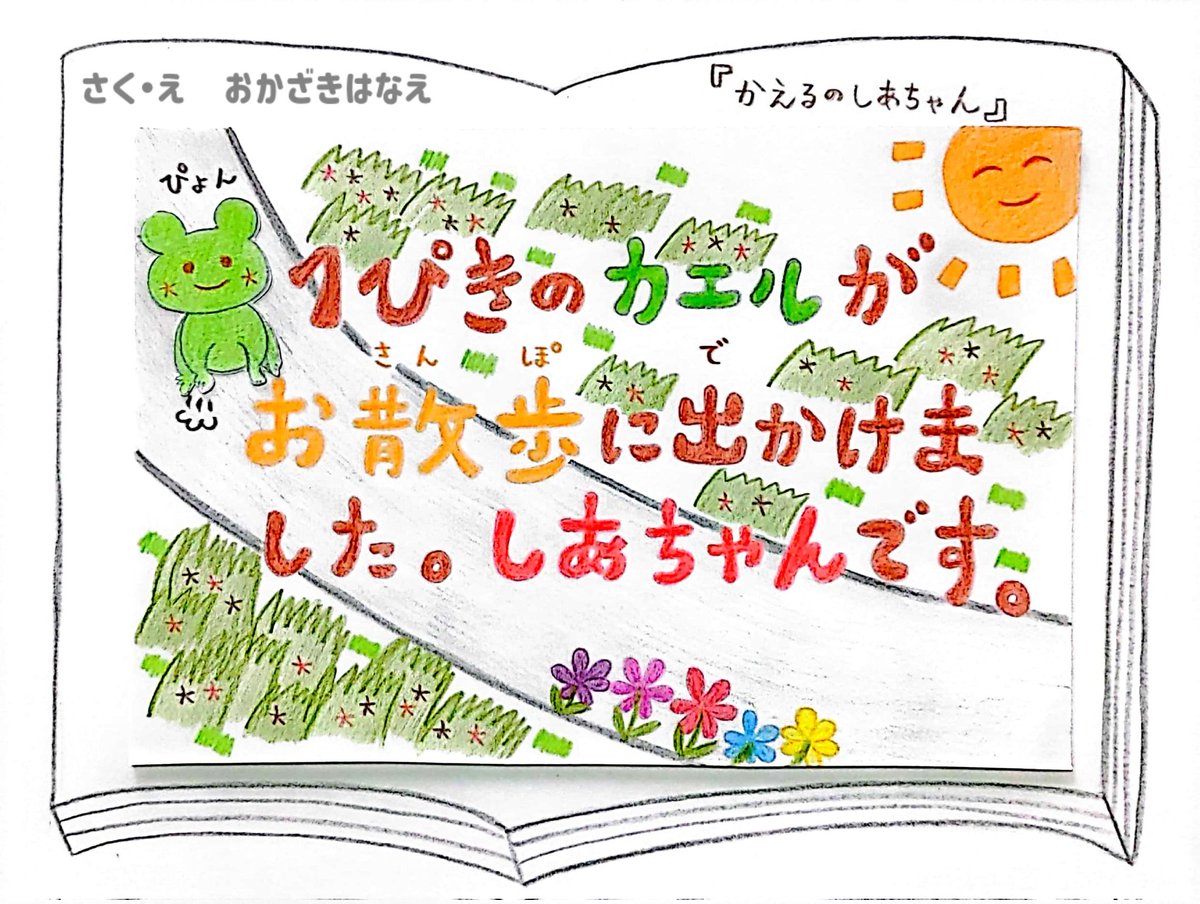 さく・え　おかざきはなえ
『かえるのしあちゃん』
ぴょん
1ぴきのカエルが
さんぽ　で
お散歩に出かけま
した。しあちゃんです。